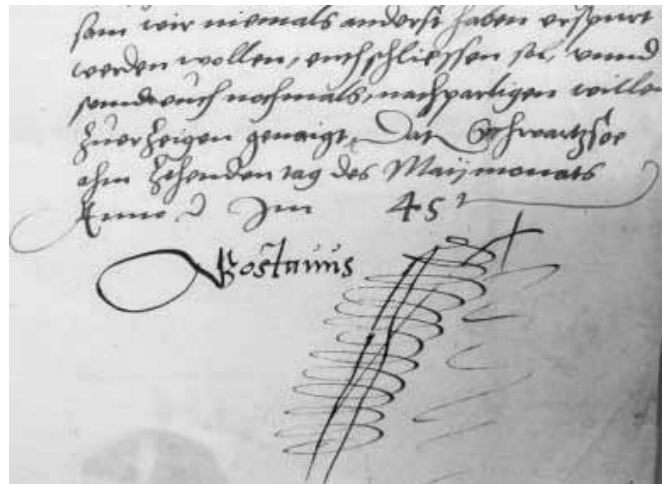 sam wir niemals anderst haben erspürt
werden wollen, entschliessen sol, vnnd
seind euch nochmals, nachpartigen willen
zuerzeigen genaigt, Dat Schwartzsee
ahm Zehenden tag des Maijmonats
Anno d Im 45
Gostauus